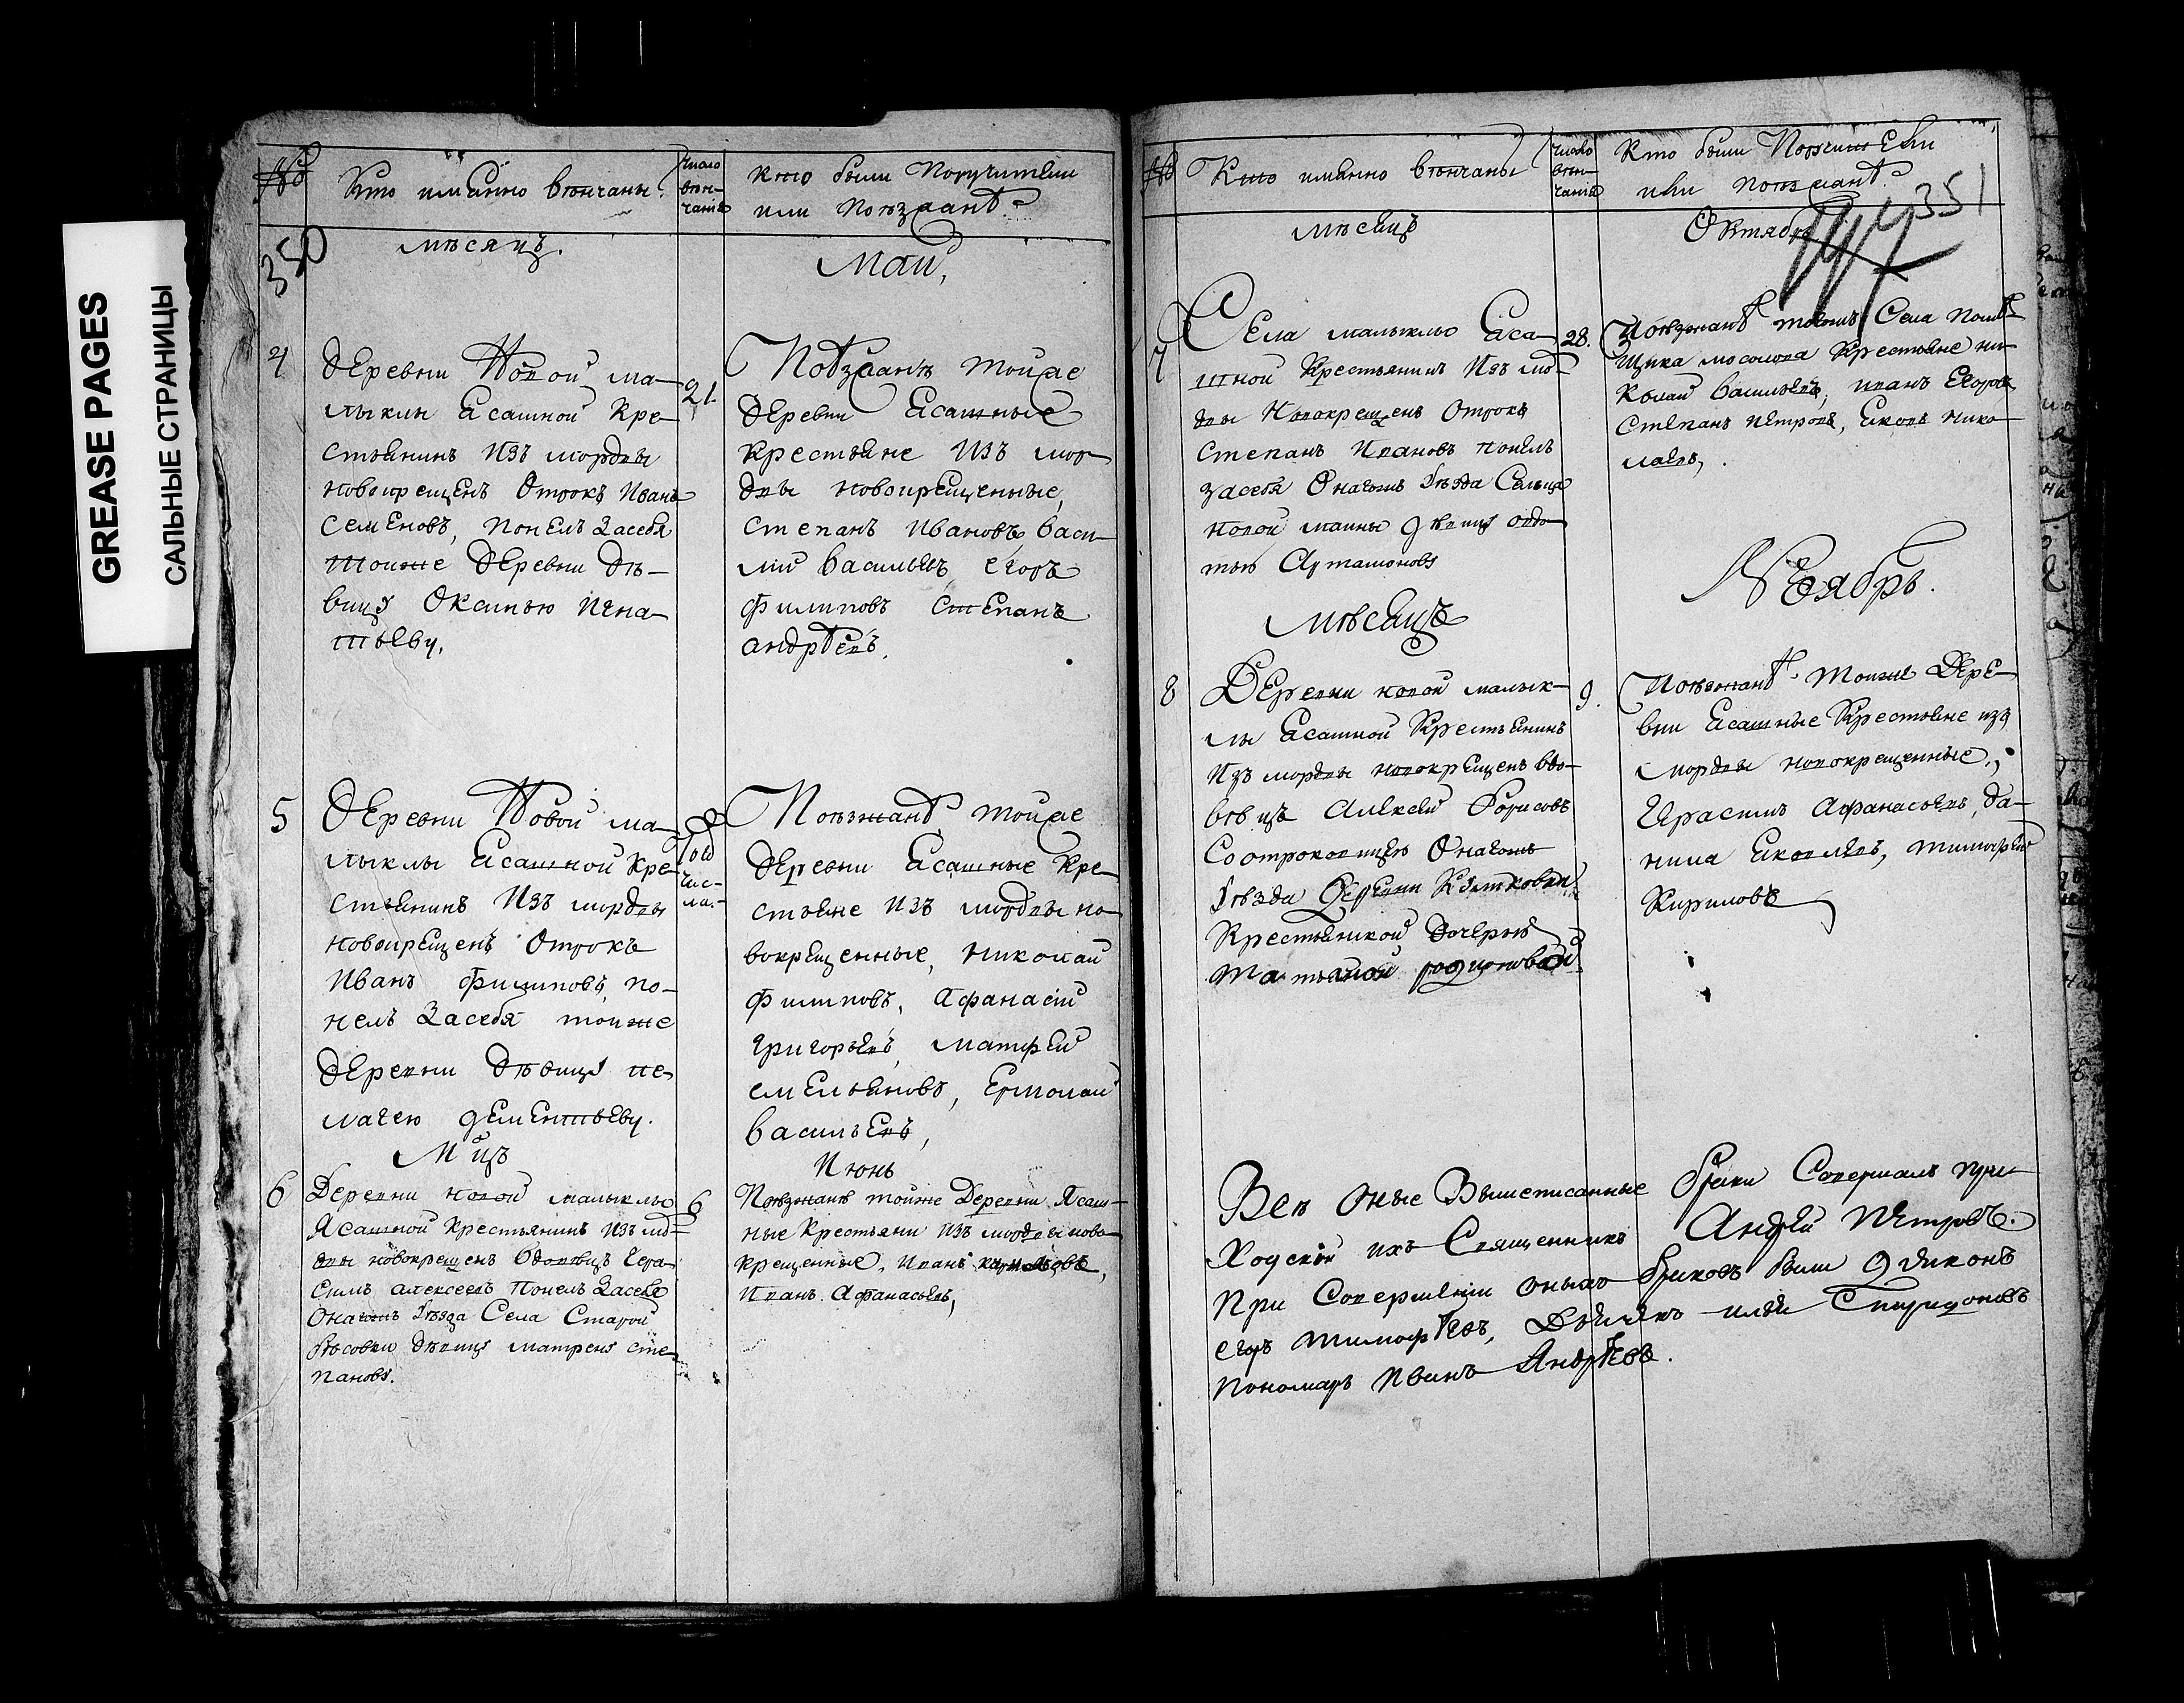 GREASE PAGES
САЛЬНЫЕ СТРАНИЦЫ
№
Кто имянно венчаны
число
вѣн-
чанія
кто были Поручители
или Поѣзжанѣ
350
мѣсяцъ.
Маій,
4
деревни Новой ма-
лыклы Ѣсашной Кре-
стьянинъ Изъ мордвы
новокрещенъ Отрокъ Иванъ
Семеновъ, Понелъ Засебя
тоиже деревни дѣ-
вицу Оксинью Игна-
тьеву.
21
Поѣзжанѣ тойже
деревни Ѣсашные
крестьяне Изъ мор-
двы новокрещенные,
степанъ Ивановъ, васи-
лий васильевъ, егоръ
филиповъ степанъ
андрѣевъ,
5
деревни Новой ма-
лыклы Ѣсашной кре-
стьянинъ Изъ мордвы
новокрещенъ Отрокъ
Иванъ филиповъ, по-
нелъ Засебя тоиже
деревни дѣвицу пе-
лагею дементьеву.
чис-
ла.
Поѣзжанѣ тойже
деревни Ѣсашные кре-
стьяне Изъ мордвы но-
вокрещенные, николай
филиповъ, Афанасій
григорьевъ, матфей
емельяновъ, Ермолай
васильевъ,
Мцъ
Июнь
6
Деревни новой малыклы
Ясашной крестьянинъ Изъ мо-
двы новокрещенъ вдовецъ Гера-
симъ алексеевъ Понелъ Засебя
Онагожъ уѣзда Села Старой
дѣвицу матрену сте-
панову.
6
Поѣзжанѣ тойже Деревни Ясаш-
ные крестьяни Изъ мордвы ново-
крещенные, Иванъ
Иванъ Афанасьевъ,
№
Кто имянно вѣнчаны
число
вѣн-
чаніѣ
Кто были Поручители
или поѣзжанѣ
351
мѣсяцъ
Октябрь
7
Села малыклы Ѣса-
шной Крестьянинъ Изъ мо-
двы Новокрещенъ Отрокъ
степанъ Ивановъ понелъ
засебя Онагожъ уѣзда Сельца
новой маины дѣвицу овдо-
тью Артамонову
28.
Поѣзжанѣ тогожъ Села поме-
щика мосолова Крестьяне ни-
колай васильевъ, иванъ Егоровъ
степанъ петровъ, Ѣковъ нико-
лаевъ,
мѣсяцъ
Ноябрь.
8
Деревни новой малык-
лы Ѣсашной Крестьянинъ
Изъ мордвы новокрещенъ вдо-
вецъ Алексей Борисовъ
Соотроковицею Онагожъ
уѣзда Деревни
Крестьянской Дочерью
татьяной родионовой
9.
Поѣзжанѣ тоиже Дере-
вни Ѣсашные Крестьяне изъ
мордвы новокрещенные,
Герасимъ Афанасьевъ, да-
нила Ѣковлевъ, тимофей
Кириловъ
Всѣ оные Вышеписанные браки Совершалъ при-
ходской ихъ Священникъ Андрей Петровъ.
При Совершеніи оныхъ браковъ были дьяконъ
егоръ тимофѣевъ, Дьячекъ илья Спиридоновъ
пономарь Иванъ Андрѣевъ.